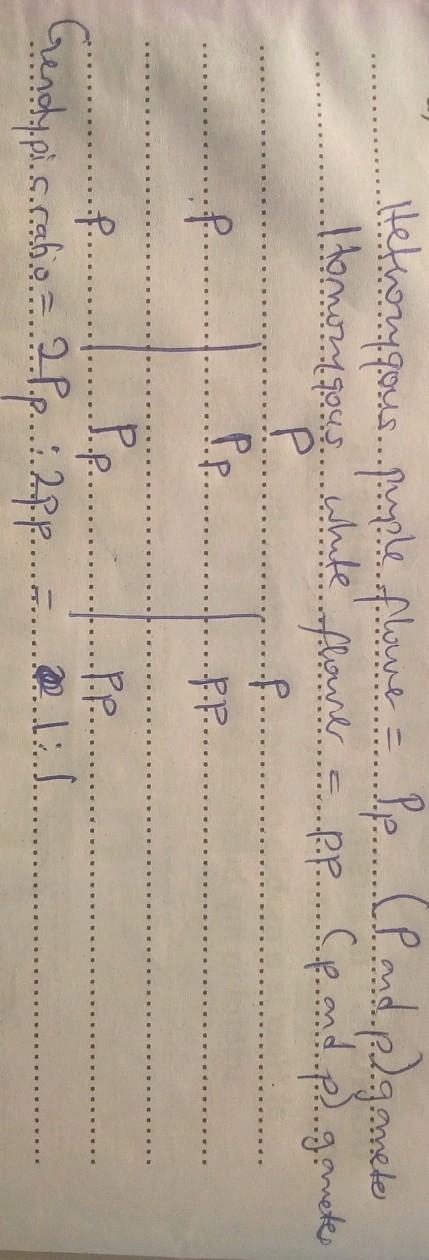 Heterozygous purple flower = Pp (P and p) gametes
Homozygous white flower = pp (p and p) gametes
P p
p Pp pp
p Pp pp
Genotypic ratio = 2Pp : 2pp = 1:1